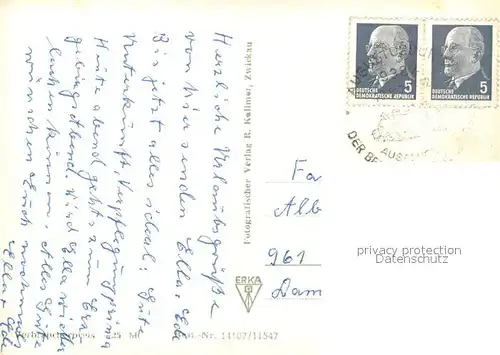 Herzliche Urlaubsgrüße
von hier senden Ella, Ede
Bis jetzt alles ideal: Gute
Unterkunft, Verpflegung prima
Heute abend geht's zum
gelingt abend. Wird Ella wieder
lachen können. Alles Gute
wünschen Euch nochmals
Ella + Ede
Verbraucherpreis 25 M
Fotografischer Verlag R. Kallmer, Zwickau
ERKA
-Nr. 14107/11547
DEUTSCHE
DEMOKRATISCHE REPUBLIK
5
DEUTSCHE
DEMOKRATISCHE REPUBLIK
5
DER BE
Fa
Alb
961
Dam
privacy protection
Datenschutz